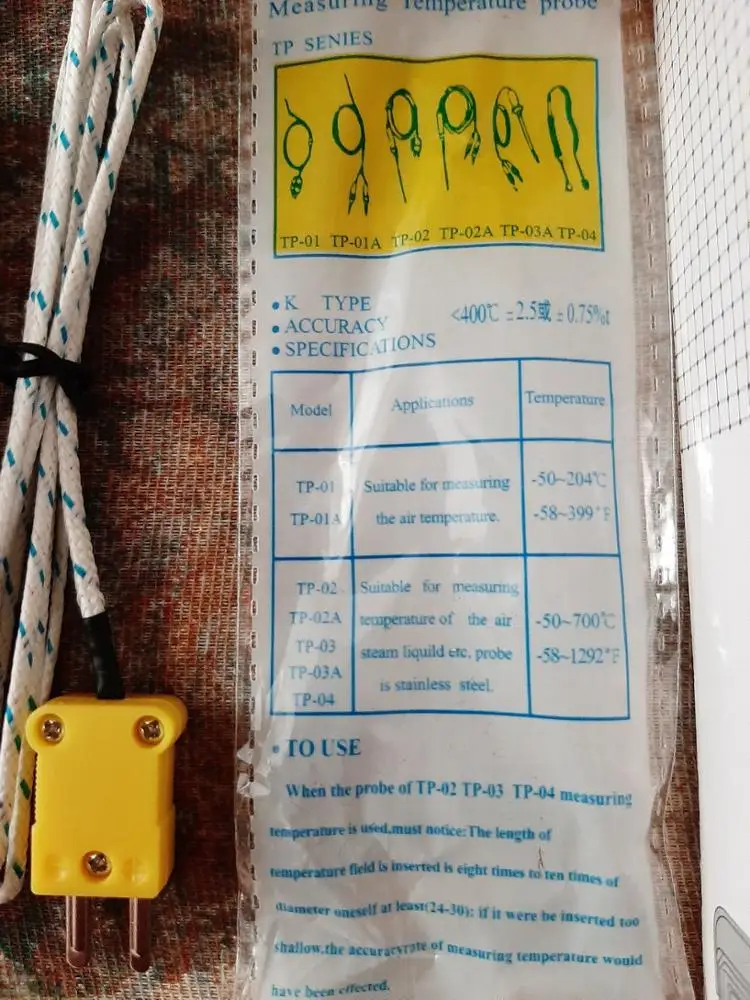 Measuring Temperature probe
TP SENIES
TP-01 TP-01A TP-02 TP-02A TP-03A TP-04
• K TYPE
• ACCURACY <400℃ ±2.5或 ±0.75%t
• SPECIFICATIONS
Model Applications Temperature
TP-01 Suitable for measuring -50~204℃
TP-01A the air temperature. -58~399°F
TP-02 Suitable for measuring
TP-02A temperature of the air -50~700℃
TP-03 steam liquild etc. probe -58~1292°F
TP-03A is stainless steel.
TP-04
• TO USE
When the probe of TP-02 TP-03 TP-04 measuring
temperature is used,must notice:The length of
temperature field is inserted is eight times to ten times of
diameter oneself at least(24-30); if it were be inserted too
shallow,the accuracyrate of measuring temperature would
have been effected.